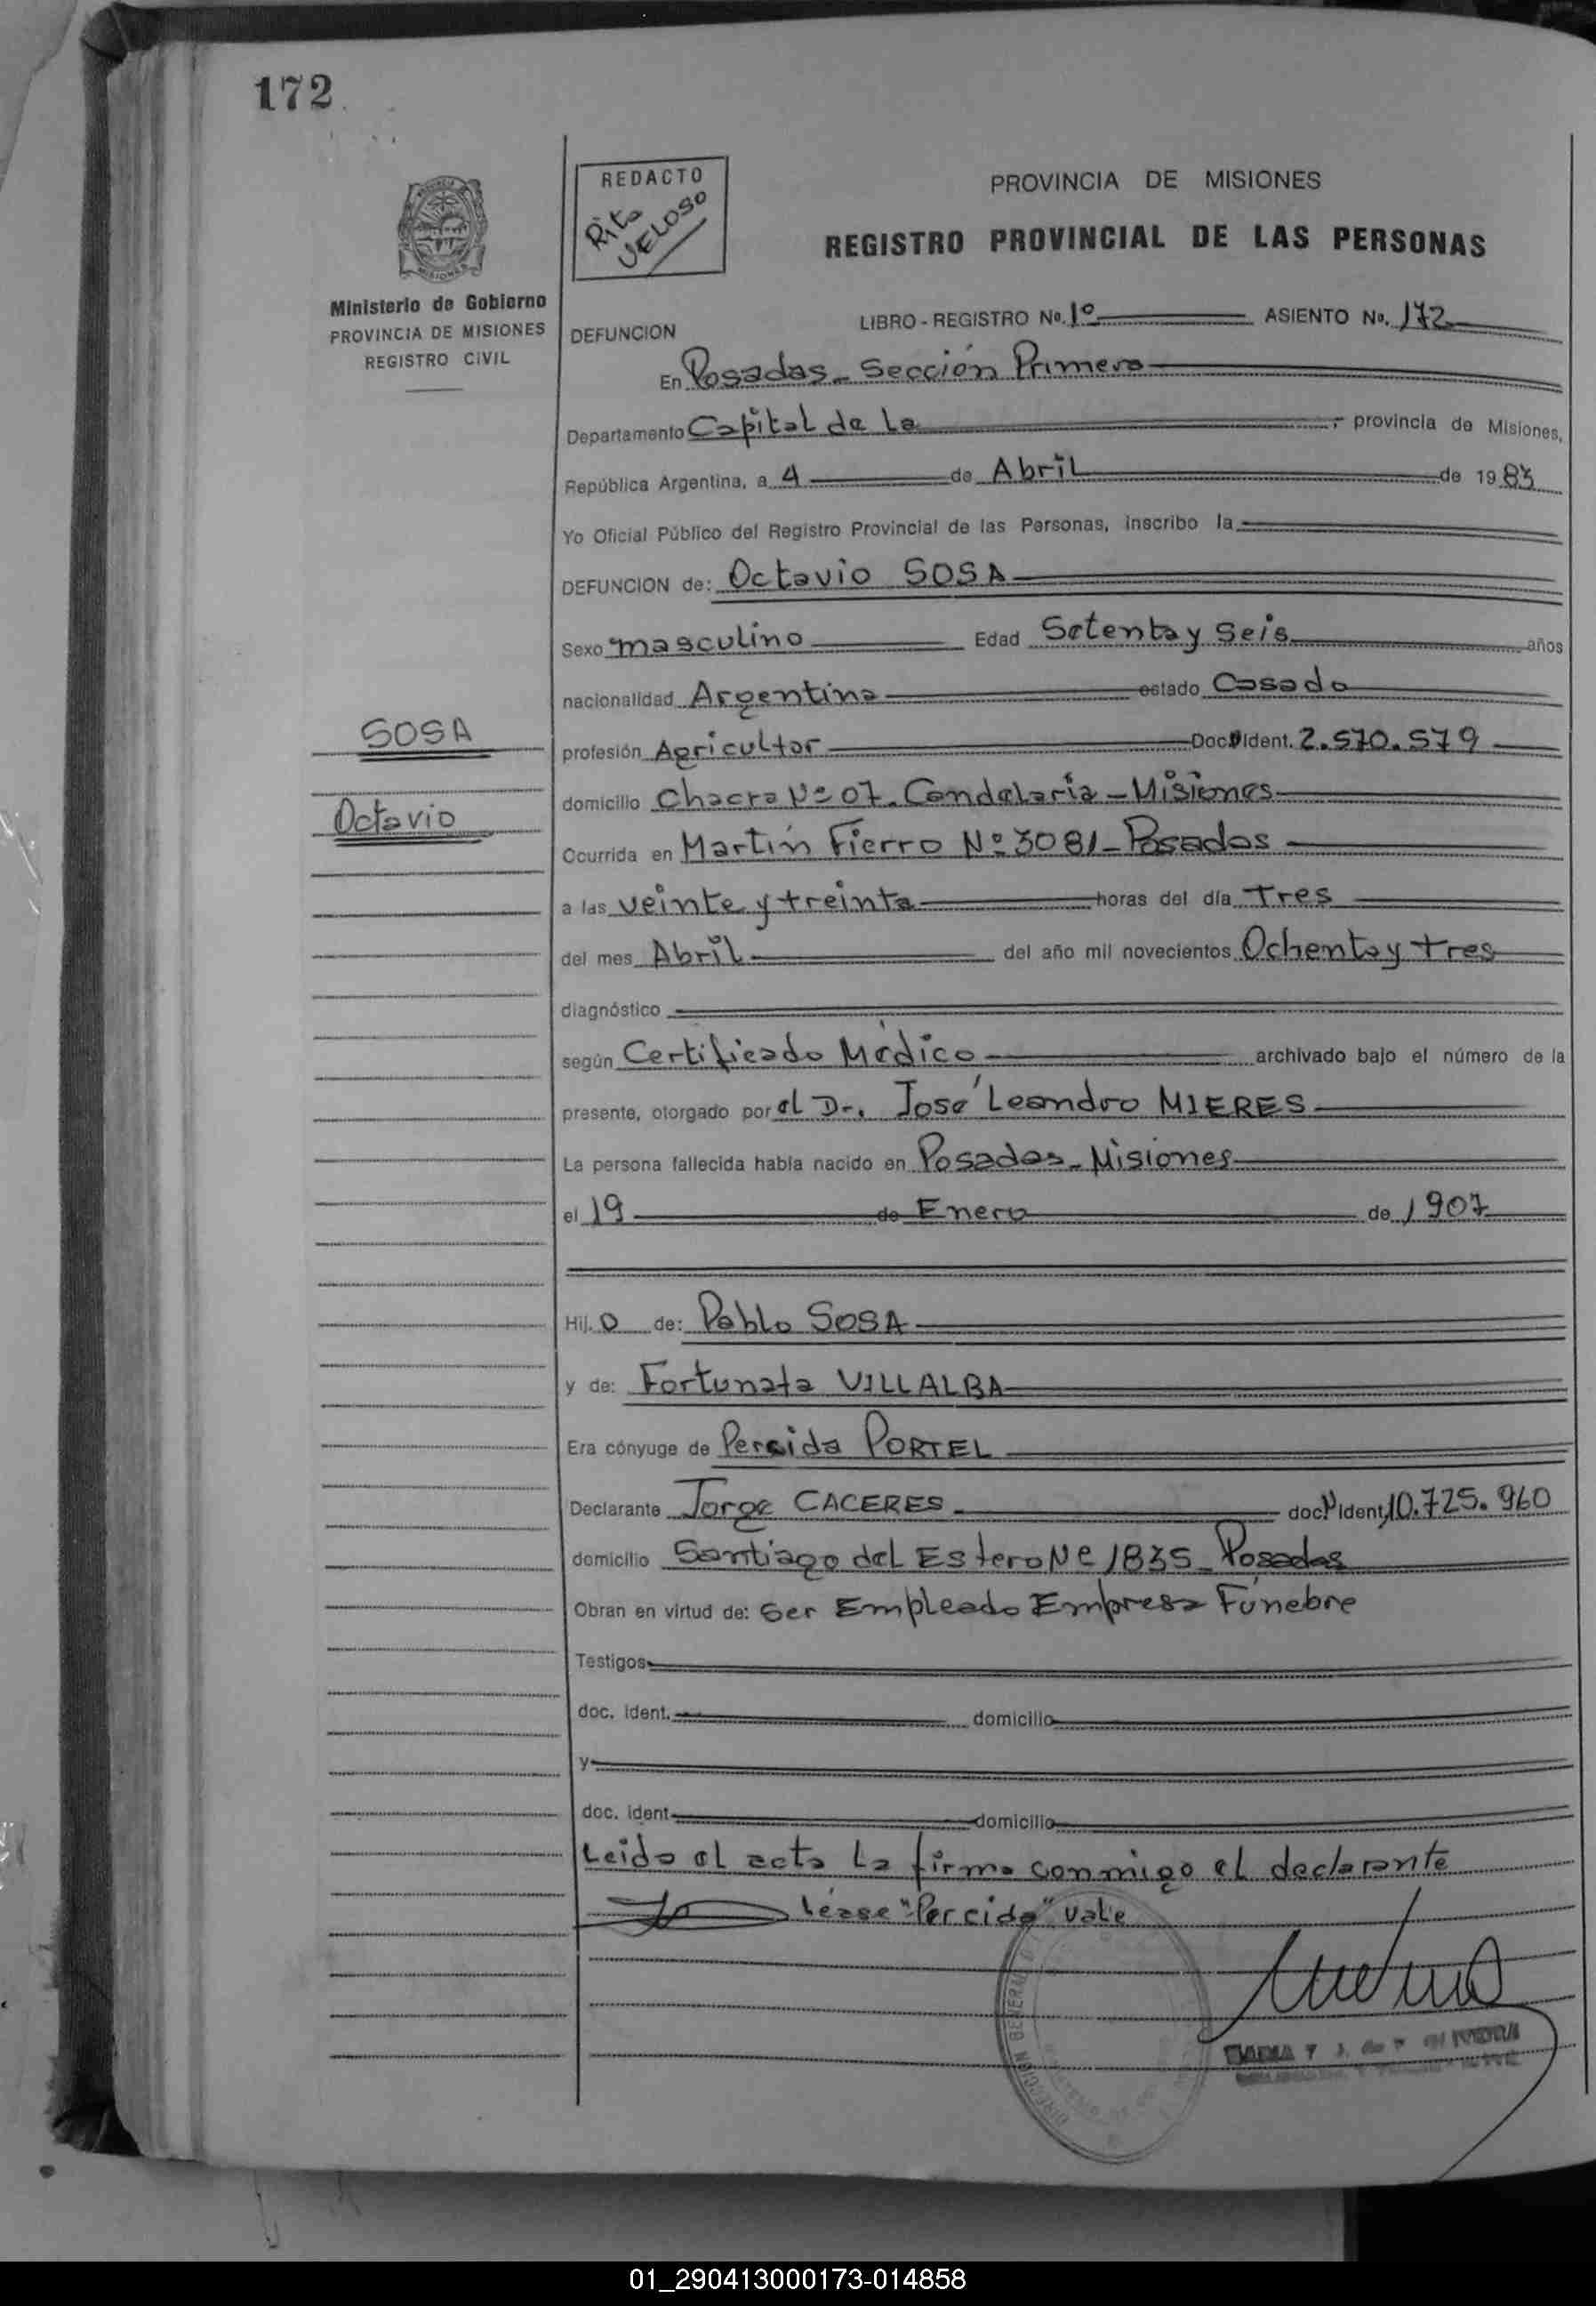 172
REDACTO
Rita
VELOSO
PROVINCIA DE MISIONES
REGISTRO PROVINCIAL DE LAS PERSONAS
Ministerio de Gobierno
PROVINCIA DE MISIONES
REGISTRO CIVIL
DEFUNCION LIBRO - REGISTRO No. 1º ASIENTO No. 172
En Posadas - Sección Primera
Departamento Capital de La - provincia de Misiones,
República Argentina, a 4 de Abril de 1983
Yo Oficial Público del Registro Provincial de las Personas, inscribo la
DEFUNCION de: Octavio SOSA
Sexo masculino Edad Setenta y Seis años
nacionalidad Argentina estado Casado
SOSA
profesión Agricultor Doc. Ident. 2.570.579
Octavio
domicilio Chacra Nº 07. Candelaria - Misiones
Ocurrida en Martín Fierro Nº 3081 - Posadas
a las veinte y treinta horas del día Tres
del mes Abril del año mil novecientos Ochenta y tres
diagnóstico
según Certificado Médico archivado bajo el número de la
presente, otorgado por el Dr. José Leandro MIERES
La persona fallecida había nacido en Posadas - Misiones
el 19 de Enero de 1907
Hij. o de: Pablo SOSA
y de: Fortunata VILLALBA
Era cónyuge de Persida PORTEL
Declarante Jorge CACERES doc. Ident. 10.725.960
domicilio Santiago del Estero Nº 1835 - Posadas
Obran en virtud de: Ser Empleado Empresa Fúnebre
Testigos
doc. ident. domicilio
y
doc. ident. domicilio
Leida el acta la firma conmigo el declarante
léase "Percida" vale
DIRECCION GENERAL
01_290413000173-014858